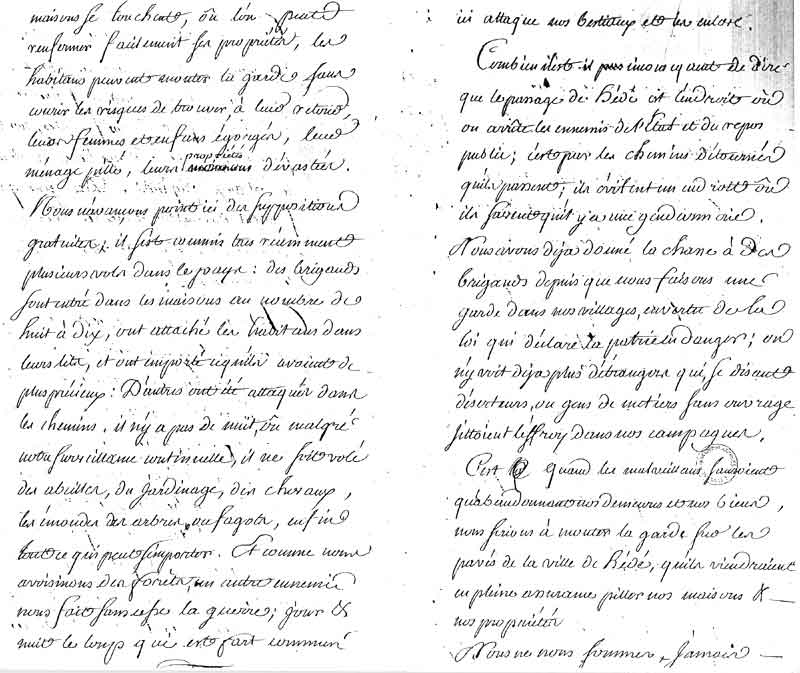 maisons se touchent, où l'on peut
renfermer facilement ses propriétés, les
habitans peuvent monter la garde sans
courir les risques de trouver, à leur retour,
leurs femmes et enfans égorgés, leur
ménage pillé, leurs propriétés dévastées.
Nous n'avançons point ici des suppositions
gratuites; il s'est commis très récemment
plusieurs vols dans le pays: des brigands
sont entré dans les maisons au nombre de
huit à dix, ont attaché les habitans dans
leurs lits, et ont emporté ce qu'ils avoient de
plus précieux: D'autres ont été attaqués dans
les chemins. il n'y a pas de nuit, où malgré
notre surveillance continuelle, il ne soit volé
des abeilles, du jardinage, des chevaux,
les émondes des arbres, ou fagots, enfin
tout ce qui peut s'emporter. Et comme nous
avoisinons des forêts, un autre ennemi
nous fait sans cesse la guerre; jour &
nuit le loup qui est fort commun
ici attaque nos bestiaux et les enlève.
Combien il est de dire
que le passage de Hédé est l'endroit où
on arrête les ennemis de l'Etat et du repos
public; c'est par les chemins détournés
qu'ils passent; ils évitent un endroit où
ils savent qu'il y a une gendarmerie.
Nous avons déja donné la chasse à des
brigands depuis que nous faisons une
garde dans nos villages, en vertu de la
loi qui déclare la patrie en danger; on
n'y voit déja plus d'étrangers qui, se disant
déserteurs, ou gens de metiers sans ouvrage
jettoient l'effroy dans nos campagnes.
C'est quand les malveillans sauroient
qu'abandonnant nos demeures et nos biens,
nous serions à monter la garde sur les
pavés de la ville de Hédé, qu'ils viendraient
en pleine assurance piller nos maisons &
nos propriétés
Nous ne nous sommes jamais